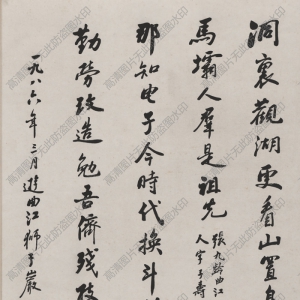 洞裏觀湖更看山置
馬壩人羣是祖先
張九齡曲江
人字子壽
那知电子今時代換斗
勤勞改造勉吾儕殘
一九八六年三月遊曲江獅子巖